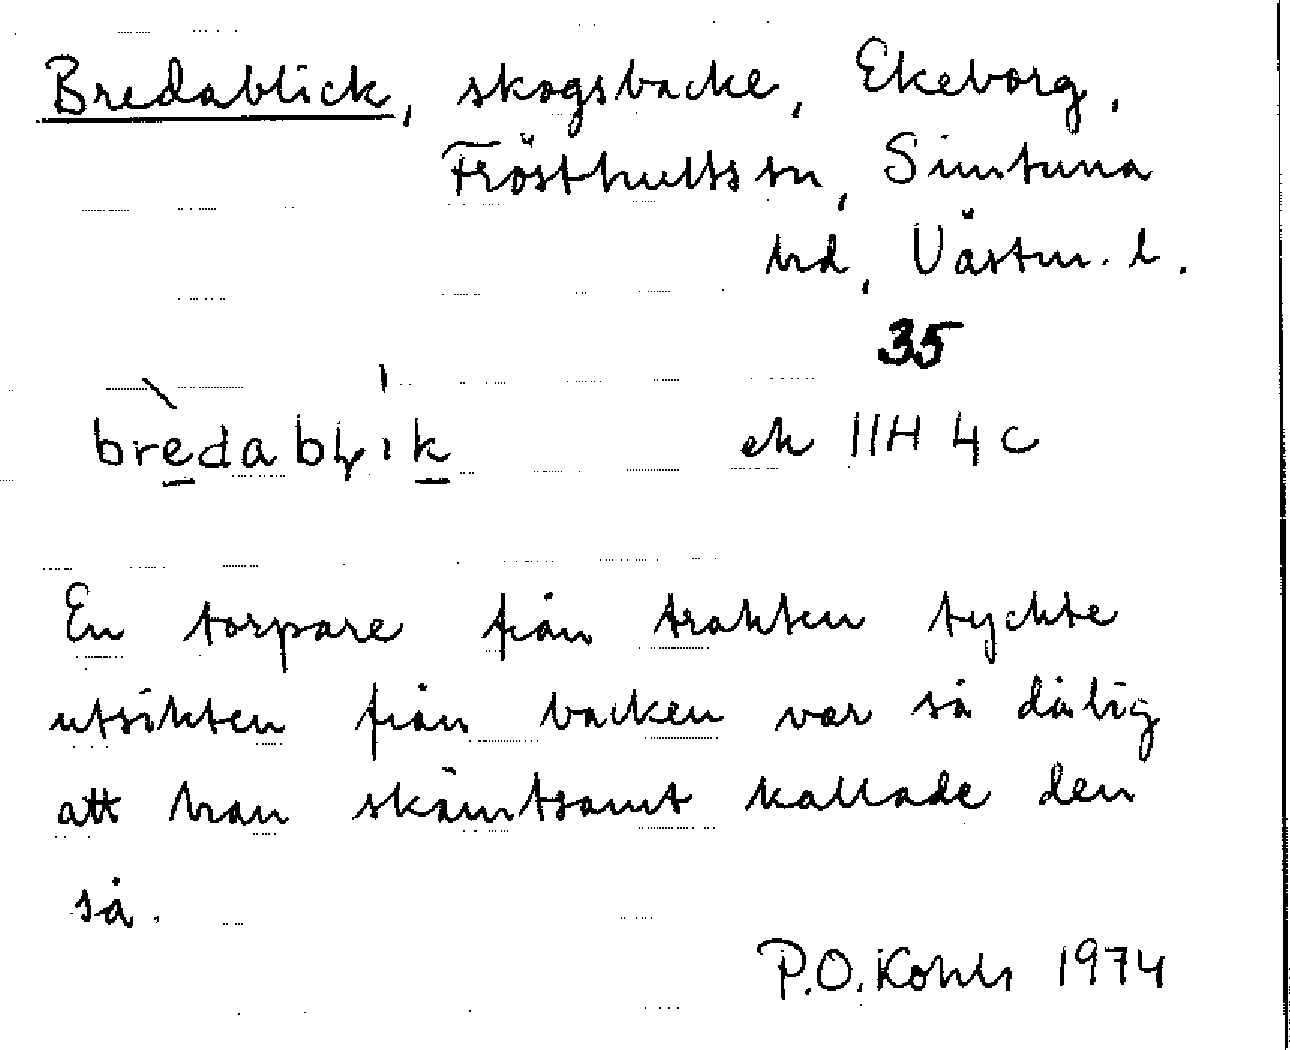 Bredablick, skogsbacke, Ekeborg,
Frösthults sn, Simtuna
hd, Västm. l.
35
brèdablik ek 11H 4c
En torpare från trakten tyckte
utsikten från backen var så dålig
att han skämtsamt kallade den
så.
P.O. Kohls 1974